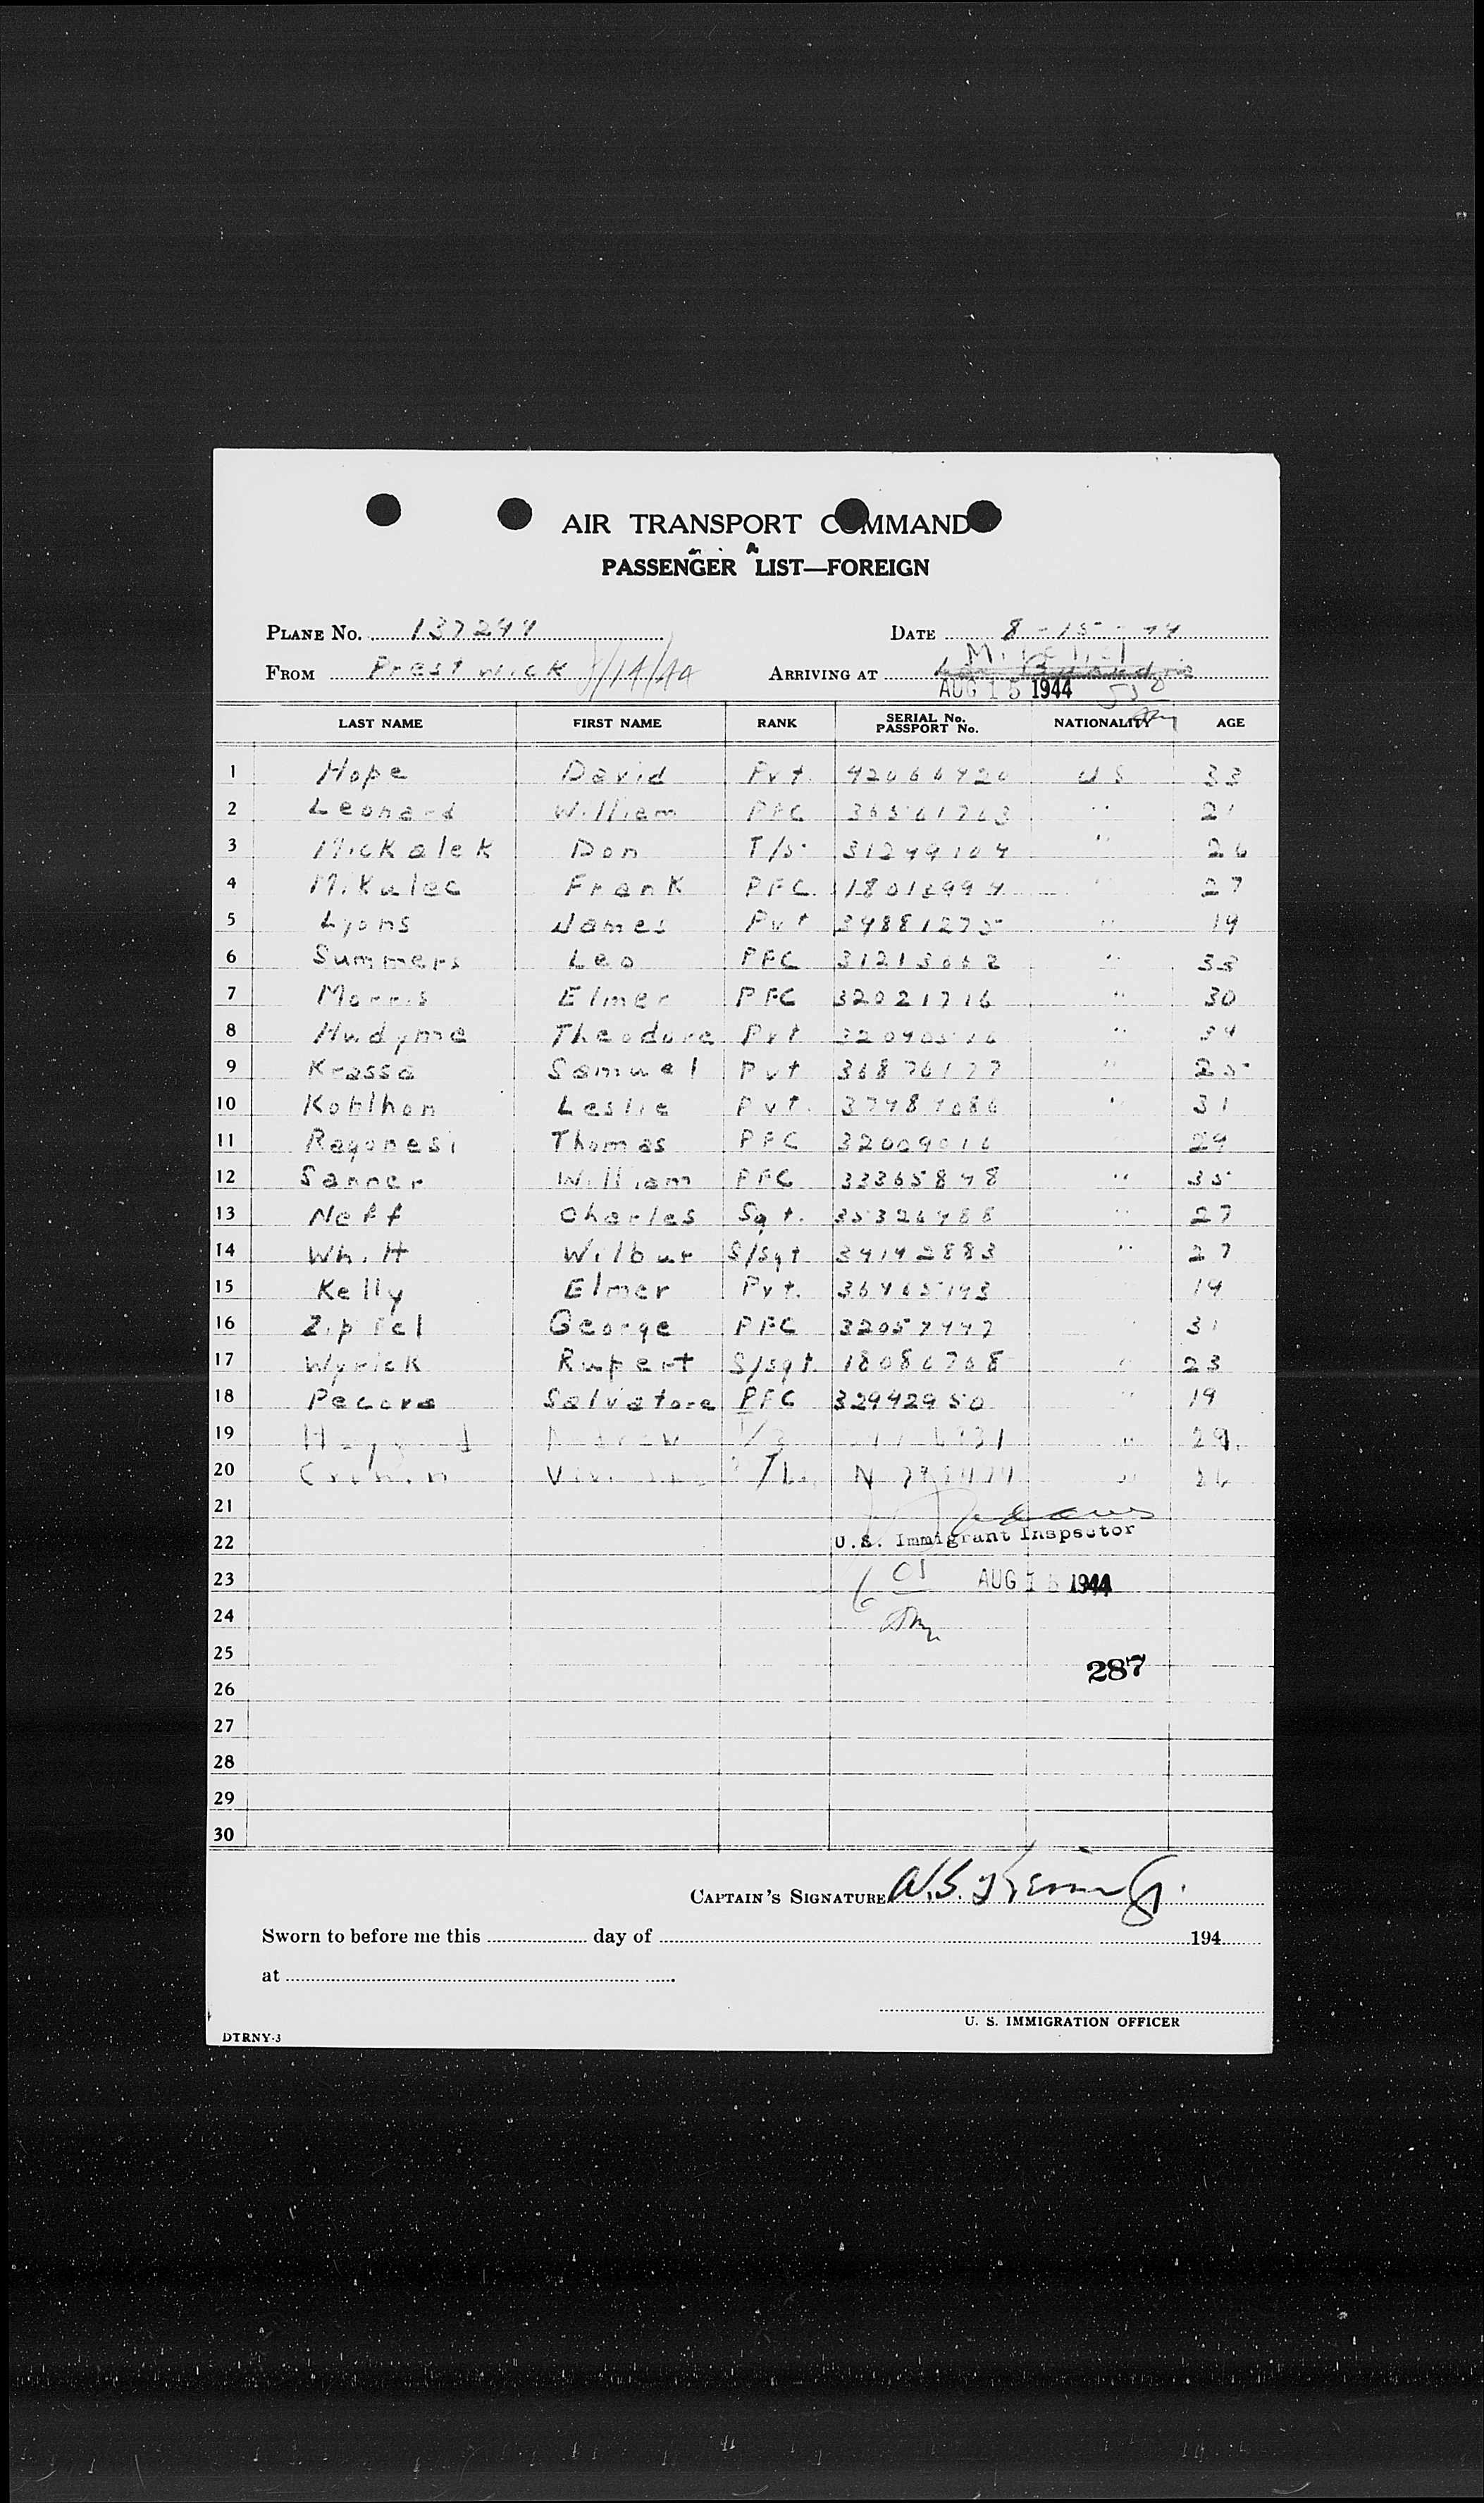 AIR TRANSPORT COMMAND
PASSENGER LIST—FOREIGN
PLANE No. 137244 DATE 8-15-44
FROM Prestwick 8/14/44 ARRIVING AT Mitchel
AUG 15 1944
LAST NAME FIRST NAME RANK SERIAL No. PASSPORT No. NATIONALITY AGE
1 Hope David Pvt. 42066420 US 33
2 Leonard William PFC 36561763 " 21
3 Mickalek Don T/5 31249104 " 26
4 Mikulec Frank PFC 18012994 " 27
5 Lyons James Pvt 34881275 " 19
6 Summers Leo PFC " 35
7 Morris Elmer PFC 32021716 " 30
8 Hudyma Theodore Pvt " 34
9 Krassa Samuel Pvt 36876177 " 25
10 Kohlhon Leslie Pvt. 37487086 " 31
11 Ragonesi Thomas PFC 32009016 29
12 Sanner William PFC 33365848 " 35
13 Neff Charles Sgt. 35326488 " 27
14 Whitt Wilbur S/Sgt 34142883 " 27
15 Kelly Elmer Pvt. 36465193 19
16 Zipfel George PFC 32057447 31
17 Wyrick Rupert S/Sgt. 18086768 " 23
18 Pecora Salvatore PFC 32942950 " 19
19 Andrew " 29
20 N "
21
22 U.S. Immigrant Inspector
23 AUG 15 1944
24
25 287
26
27
28
29
30
CAPTAIN'S SIGNATURE
Sworn to before me this day of 194
at
U. S. IMMIGRATION OFFICER
DTRNY-3